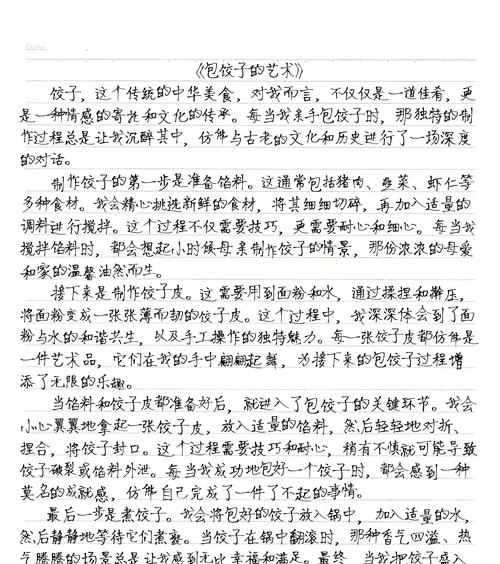 Date.
《包饺子的艺术》
饺子，这个传统的中华美食，对我而言，不仅仅是一道佳肴，更
是一种情感的寄托和文化的传承。每当我亲手包饺子时，那独特的制
作过程总是让我沉醉其中，仿佛与古老的文化和历史进行了一场深度
的对话。
制作饺子的第一步是准备馅料。这通常包括猪肉、韭菜、虾仁等
多种食材。我会精心挑选新鲜的食材，将其细细切碎，再加入适量的
调料进行搅拌。这个过程不仅需要技巧，更需要耐心和细心。每当我
搅拌馅料时，都会想起小时候母亲制作饺子的情景，那份浓浓的母爱
和家的温馨油然而生。
接下来是制作饺子皮。这需要用到面粉和水，通过揉捏和擀压，
将面粉变成一张张薄而韧的饺子皮。这个过程中，我深深体会到了面
粉与水的和谐共生，以及手工操作的独特魅力。每一张饺子皮都仿佛是
一件艺术品，它们在我的手中翩翩起舞，为接下来的包饺子过程增
添了无限的乐趣。
当馅料和饺子皮都准备好后，就进入了包饺子的关键环节。我会
小心翼翼地拿起一张饺子皮，放入适量的馅料，然后轻轻地对折、
捏合，将饺子封口。这个过程需要技巧和耐心，稍有不慎就可能导致
饺子破裂或馅料外泄。每当我成功地包好一个饺子时，都会感到一种
莫名的成就感，仿佛自己完成了一件了不起的事情。
最后一步是煮饺子。我会将包好的饺子放入锅中，加入适量的水，
然后静静地等待它们煮熟。当饺子在锅中翻滚时，那种香气四溢、热
气腾腾的场景总是让我感到无比幸福和满足。最终，当我把饺子盛入